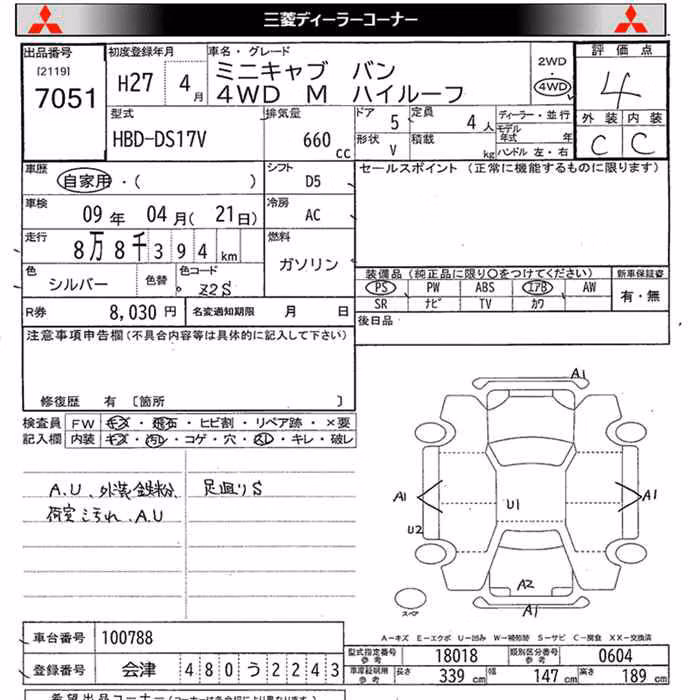 三菱ディーラーコーナー
出品番号 [2119] 7051
初度登録年月 H27 4月
車名・グレード ミニキャブ バン
4WD M ハイルーフ
2WD・4WD
評価点 4
外装 内装
C C
型式 HBD-DS17V
排気量 660 cc
ドア 5 定員 4人
形状 V 積載 kg
ディーラー・並行
モデル年式 年
ハンドル 左・右
車歴 自家用・( )
シフト D5
セールスポイント (正常に機能するものに限ります)
車検 09年 04月( 21日)
冷房 AC
走行 8万8千394 km
燃料 ガソリン
色 シルバー 色替 色コード Z2S
装備品(純正品に限り○をつけてください) 新車保証書
PS PW ABS エアB AW 有・無
SR ナビ TV カワ
R券 8,030 円 名変通知期限 月 日
後日品
注意事項申告欄(不具合内容等は具体的に記入して下さい)
修復歴 有 [箇所 ]
検査員 FW キズ・飛石・ヒビ割・リペア跡・×要
記入欄 内装 キズ・汚れ・コゲ・穴・スレ・キレ・破レ
A.U、外装鉄粉 足廻りS
荷室こ汚れ、A.U
A1
A1 U1 A1
U2
A2
A1
スペア
A－キズ E－エクボ U－凹み W－補修跡 S－サビ C－腐食 XX－交換済
車台番号 100788
型式指定番号 参考 18018 類別区分番号 参考 0604
登録番号 会津 480う2243
車庫証明用 参考 長さ 339 cm 幅 147 cm 高さ 189 cm
希望出品コーナー